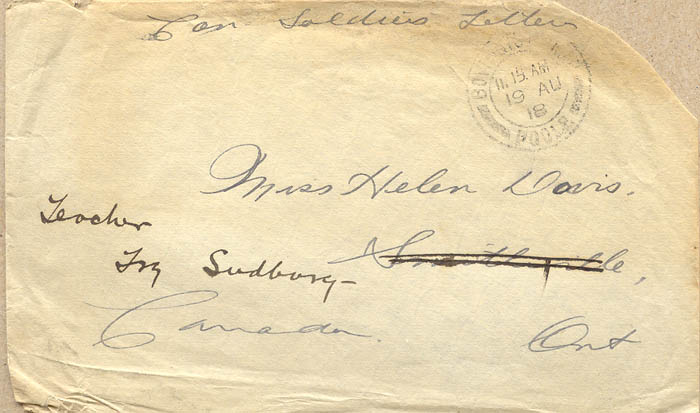 Can Soldiers Letter
11.15 AM
19 AU
18
POOLE
Miss Helen Davis.
Teacher
Smithville,
Try Sudbury
Canada. Ont